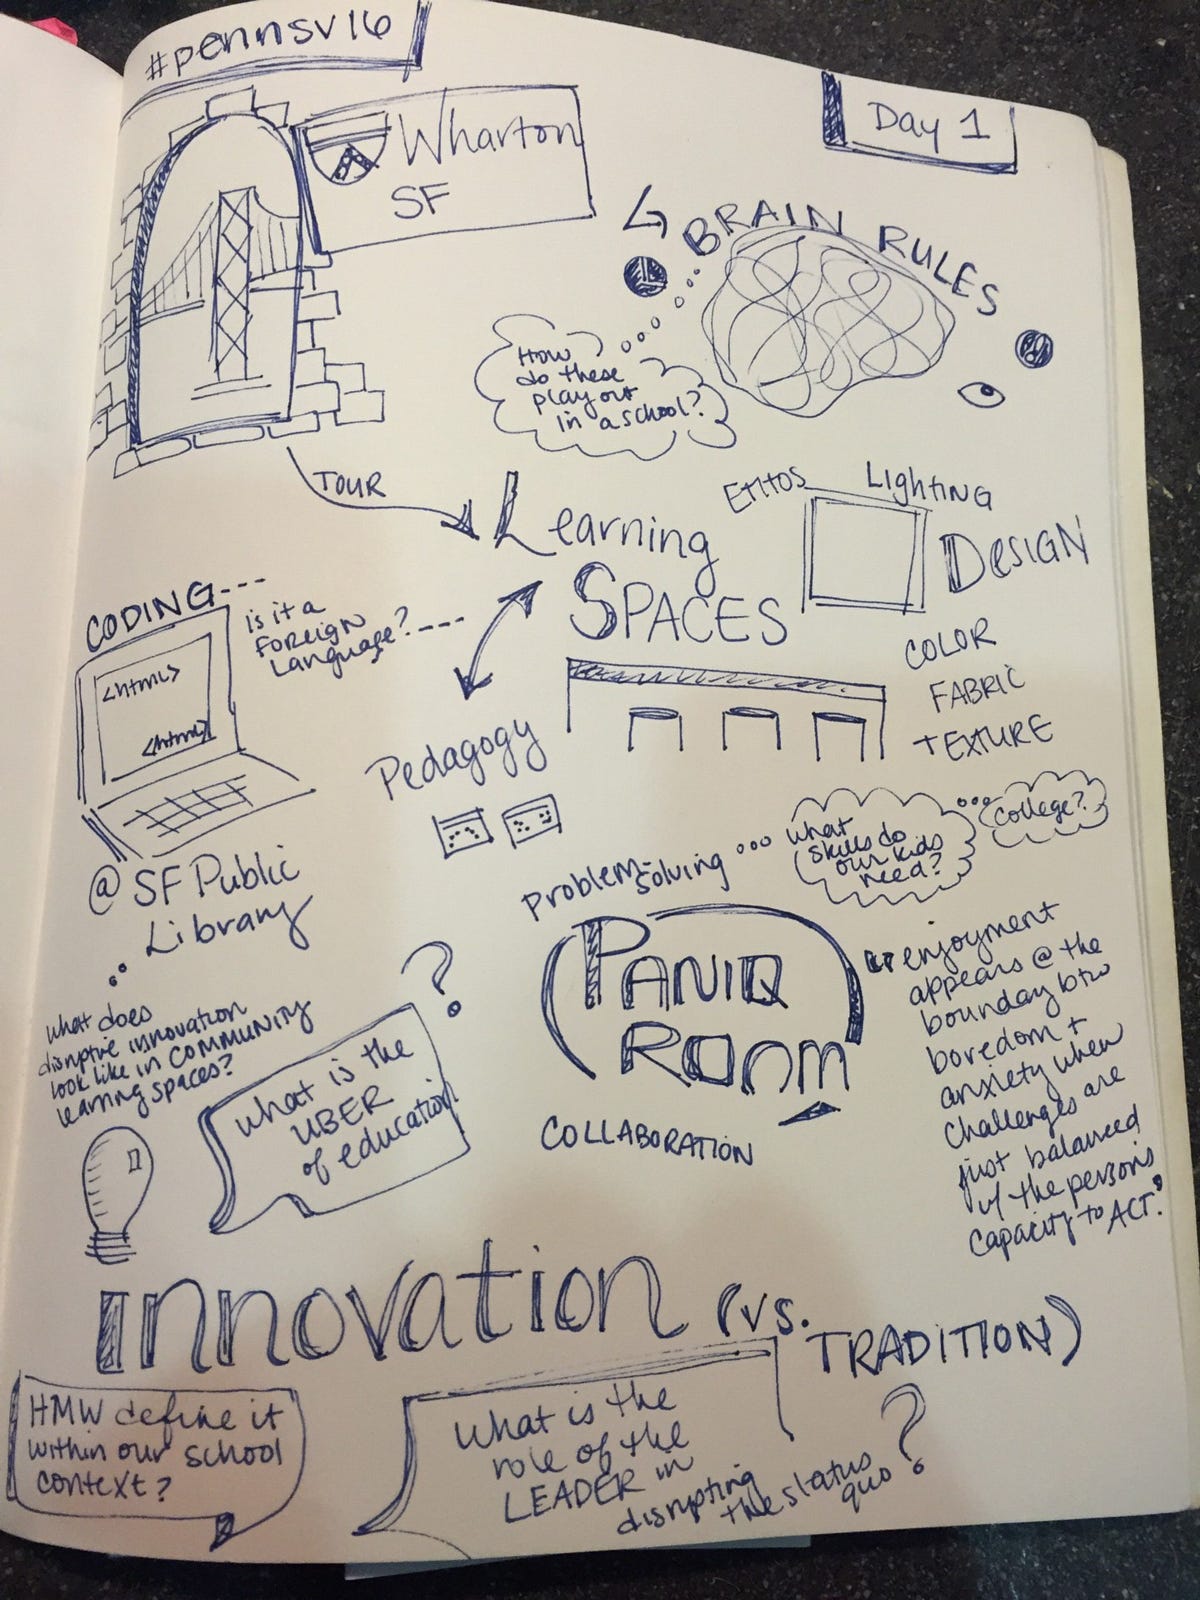 #pennsv16
Day 1
Wharton
SF
BRAIN RULES
How
do these
play out
in a school?
TOUR
Learning
SPACES
Ethos
Lighting
DESIGN
COLOR
FABRIC
TEXTURE
CODING---
is it a
FOREIGN
Language?---
<html>
<html>
@ SF Public
Library
Pedagogy
Problem-
solving
what
skills do
our kids
need?
college?
PANIQ
ROOM
COLLABORATION
"enjoyment
appears @ the
bounday btw
boredom +
anxiety when
challenges are
just balanced
w/ the person's
capacity to ACT."
what does
disruptive innovation
look like in COMMUNITY
learning spaces?
what is the
UBER
of education
?
innovation (vs.
TRADITION)
HMW define it
within our school
context?
what is the
role of the
LEADER in
disrupting
the status
quo ?